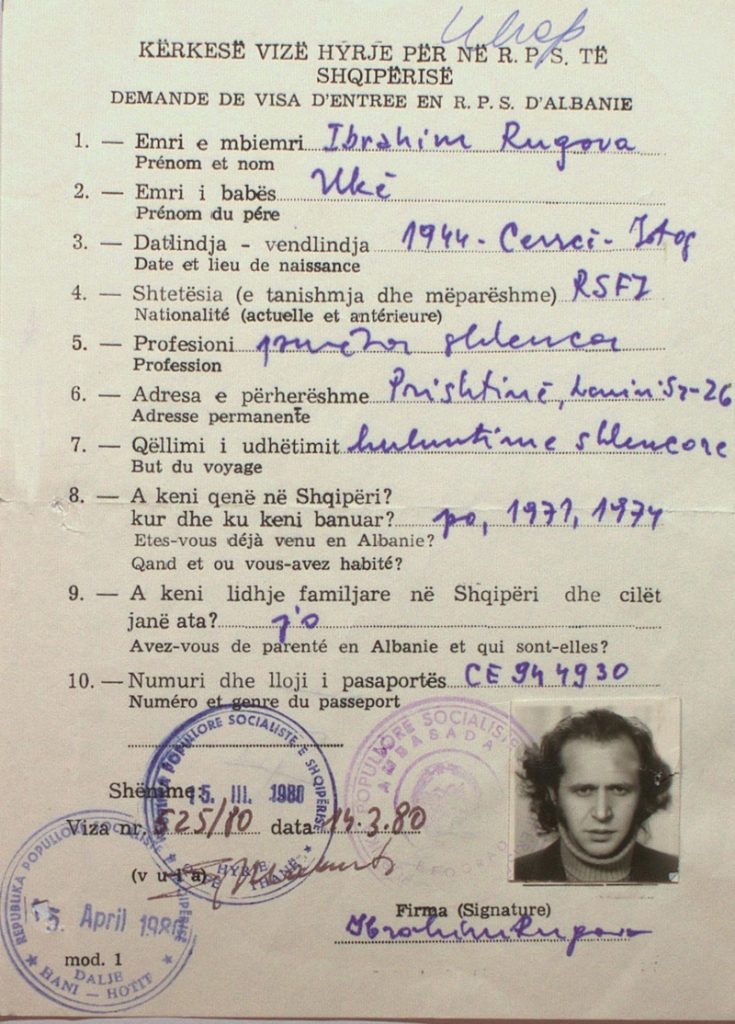 KËRKESË VIZË HYRJE PËR NË R. P. S. TË
SHQIPËRISË
DEMANDE DE VISA D'ENTREE EN R. P. S. D'ALBANIE
1. — Emri e mbiemri Ibrahim Rugova
Prénom et nom
2. — Emri i babës Ukë
Prénom du pére
3. — Datlindja - vendlindja 1944 - Cerrcë - Istog
Date et lieu de naissance
4. — Shtetësia (e tanishmja dhe mëparëshme) RSFJ
Nationalité (actuelle et antérieure)
5. — Profesioni punëtor shkencor
Profession
6. — Adresa e përherëshme Prishtinë, Lenin 26
Adresse permanente
7. — Qëllimi i udhëtimit hulumtime shkencore
But du voyage
8. — A keni qenë në Shqipëri?
kur dhe ku keni banuar? po, 1971, 1974
Etes-vous déjà venu en Albanie?
Qand et ou vous-avez habité?
9. — A keni lidhje familjare në Shqipëri dhe cilët
janë ata? jo
Avez-vous de parenté en Albanie et qui sont-elles?
10. — Numuri dhe lloji i pasaportës CE 944930
Numéro et genre du passeport
POPULLORE SOCIALISTE E SHQIPËRISË
15. III. 1980
HYRJE
POPULLORE SOCIALISTE
AMBASADA
BEOGRAD
Shënime:
Viza nr. 525/80 data 14.3.80
(vula)
REPUBLIKA POPULLORE SOCIALISTE E SHQIPËRISË
April 1980
DALJE
HANI — HOTIT
Firma (Signature)
Ibrahim Rugova
mod. 1